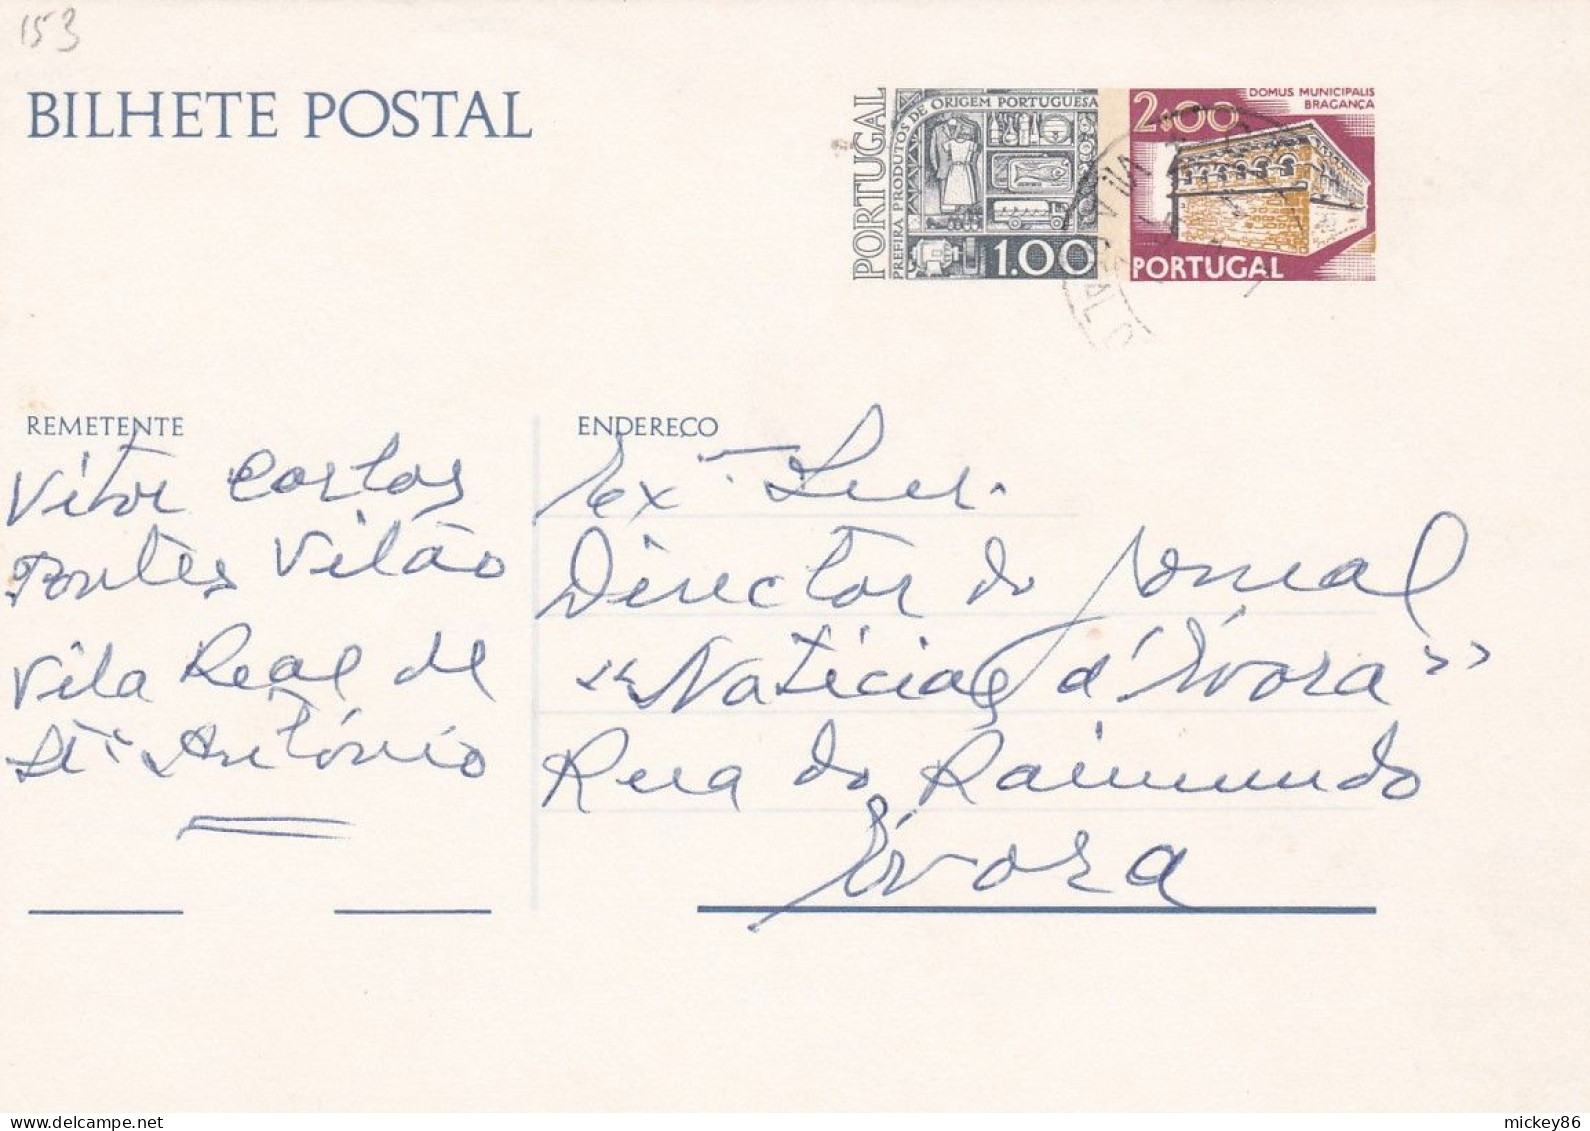 153
BILHETE POSTAL
PORTUGAL
PREFIRA PRODUTOS DE ORIGEM PORTUGUESA
1.00
2$00
DOMUS MUNICIPALIS
BRAGANÇA
PORTUGAL
REMETENTE
Vitor Carlos
Pontes Vilão
Vila Real de
Stº António
ENDEREÇO
Exº
Director do Jornal
"Notícias d'Évora"
Rua do Raimundo
Évora
mickey86